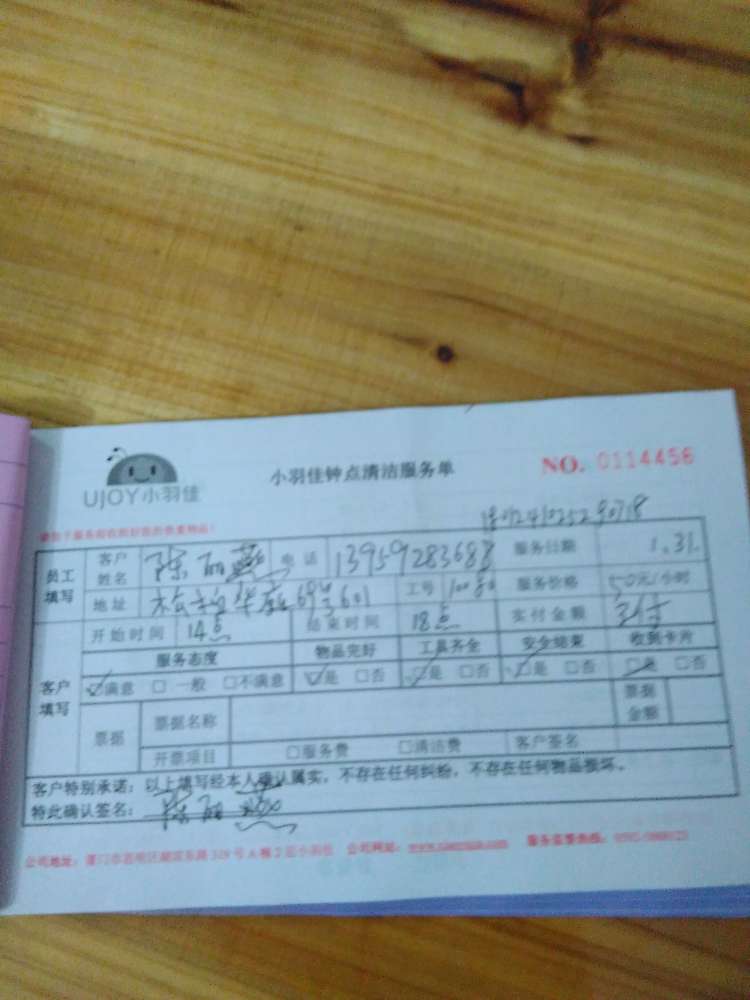 UJOY小羽佳
小羽佳钟点清洁服务单
NO. 0114456
员工填写 客户姓名 陈丽燕 电话 13959283683 服务日期 1.31.
地址 工号 服务价格 50元/小时
开始时间 14点 结束时间 18点 实付金额
客户填写 服务态度 物品完好 工具齐全 安全结束 收到卡片
☑满意 □一般 □不满意 ☑是 □否 ☑是 □否 ☑是 □否 ☑是 □否
票据 票据名称 票据金额
开票项目 □服务费 □清洁费 客户签名
客户特别承诺：以上填写经本人确认属实，不存在任何纠纷，不存在任何物品损坏。
特此确认签名：陈丽燕
公司地址： 公司网站： 服务监督热线：